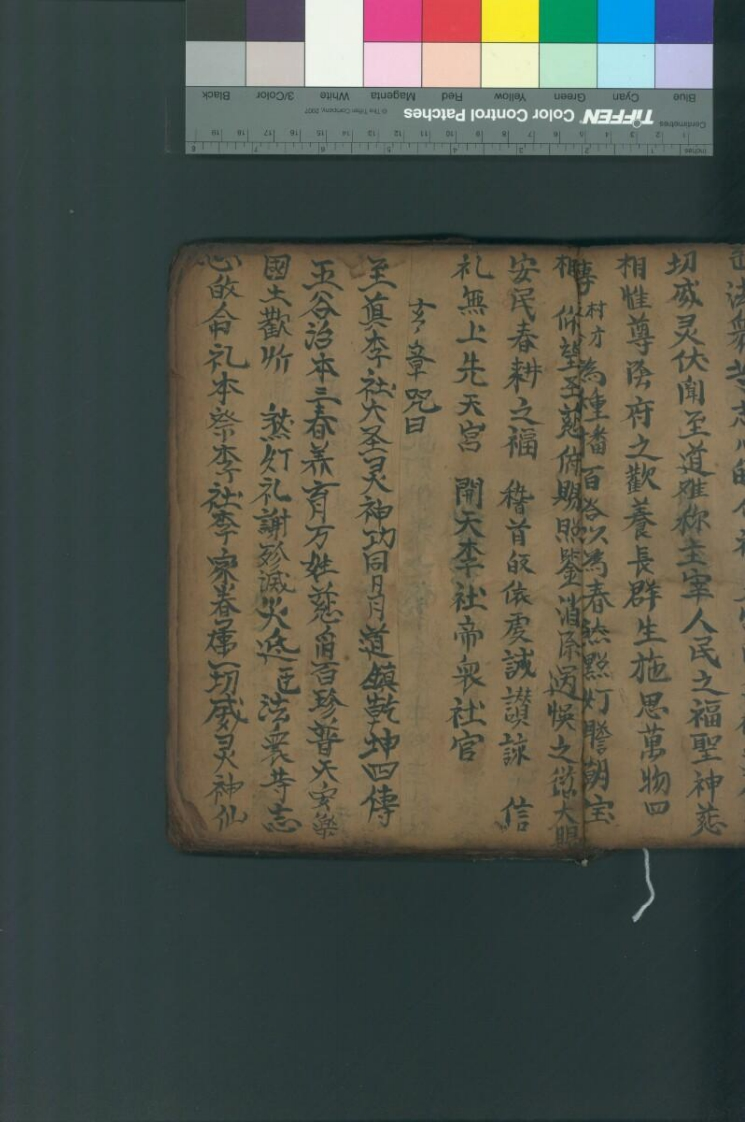 Blue Cyan Green Yellow Red Magenta White 3/Color Black
Centimetres TIFFEN Color Control Patches © The Tiffen Company, 2007
Inches
法衆
切威灵伏聞至道难称主宰人民之福聖神慈
相惟尊陰府之歡養長群生施恩萬物四
村方為種播百谷以為春 點灯 朝宝
相 仰望至慈俯賜照鑒消除過悞之愆大賜
安民春耕之福 稽首皈依虔誠讃諒 信
礼無上先天宮 開天李社帝衆社官
玄章咒曰
至眞李社大圣灵神功同日月道鎮乾坤四傳
五谷治本三春养育万姓慈 百珍普天安樂
國土歡忻 燃灯礼謝殄滅災 法衆苐志
心皈命礼本祭李社李家春 一切威灵神仙